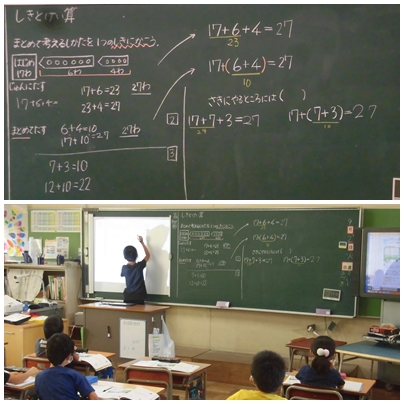 しきとけい算
まとめて考えるしかたを1つのしきにかこう。
はじめ
17わ
6わ 4わ
じゅんにたす
17+6+4
17+6=23 27わ
23+4=27
まとめてたす
6+4=10
17+10=27 27わ
7+3=10
12+10=22
2
3
17+6+4=27
23
17+(6+4)=27
10
さきにやるところには( )
17+7+3=27
24
17+(7+3)=27
10